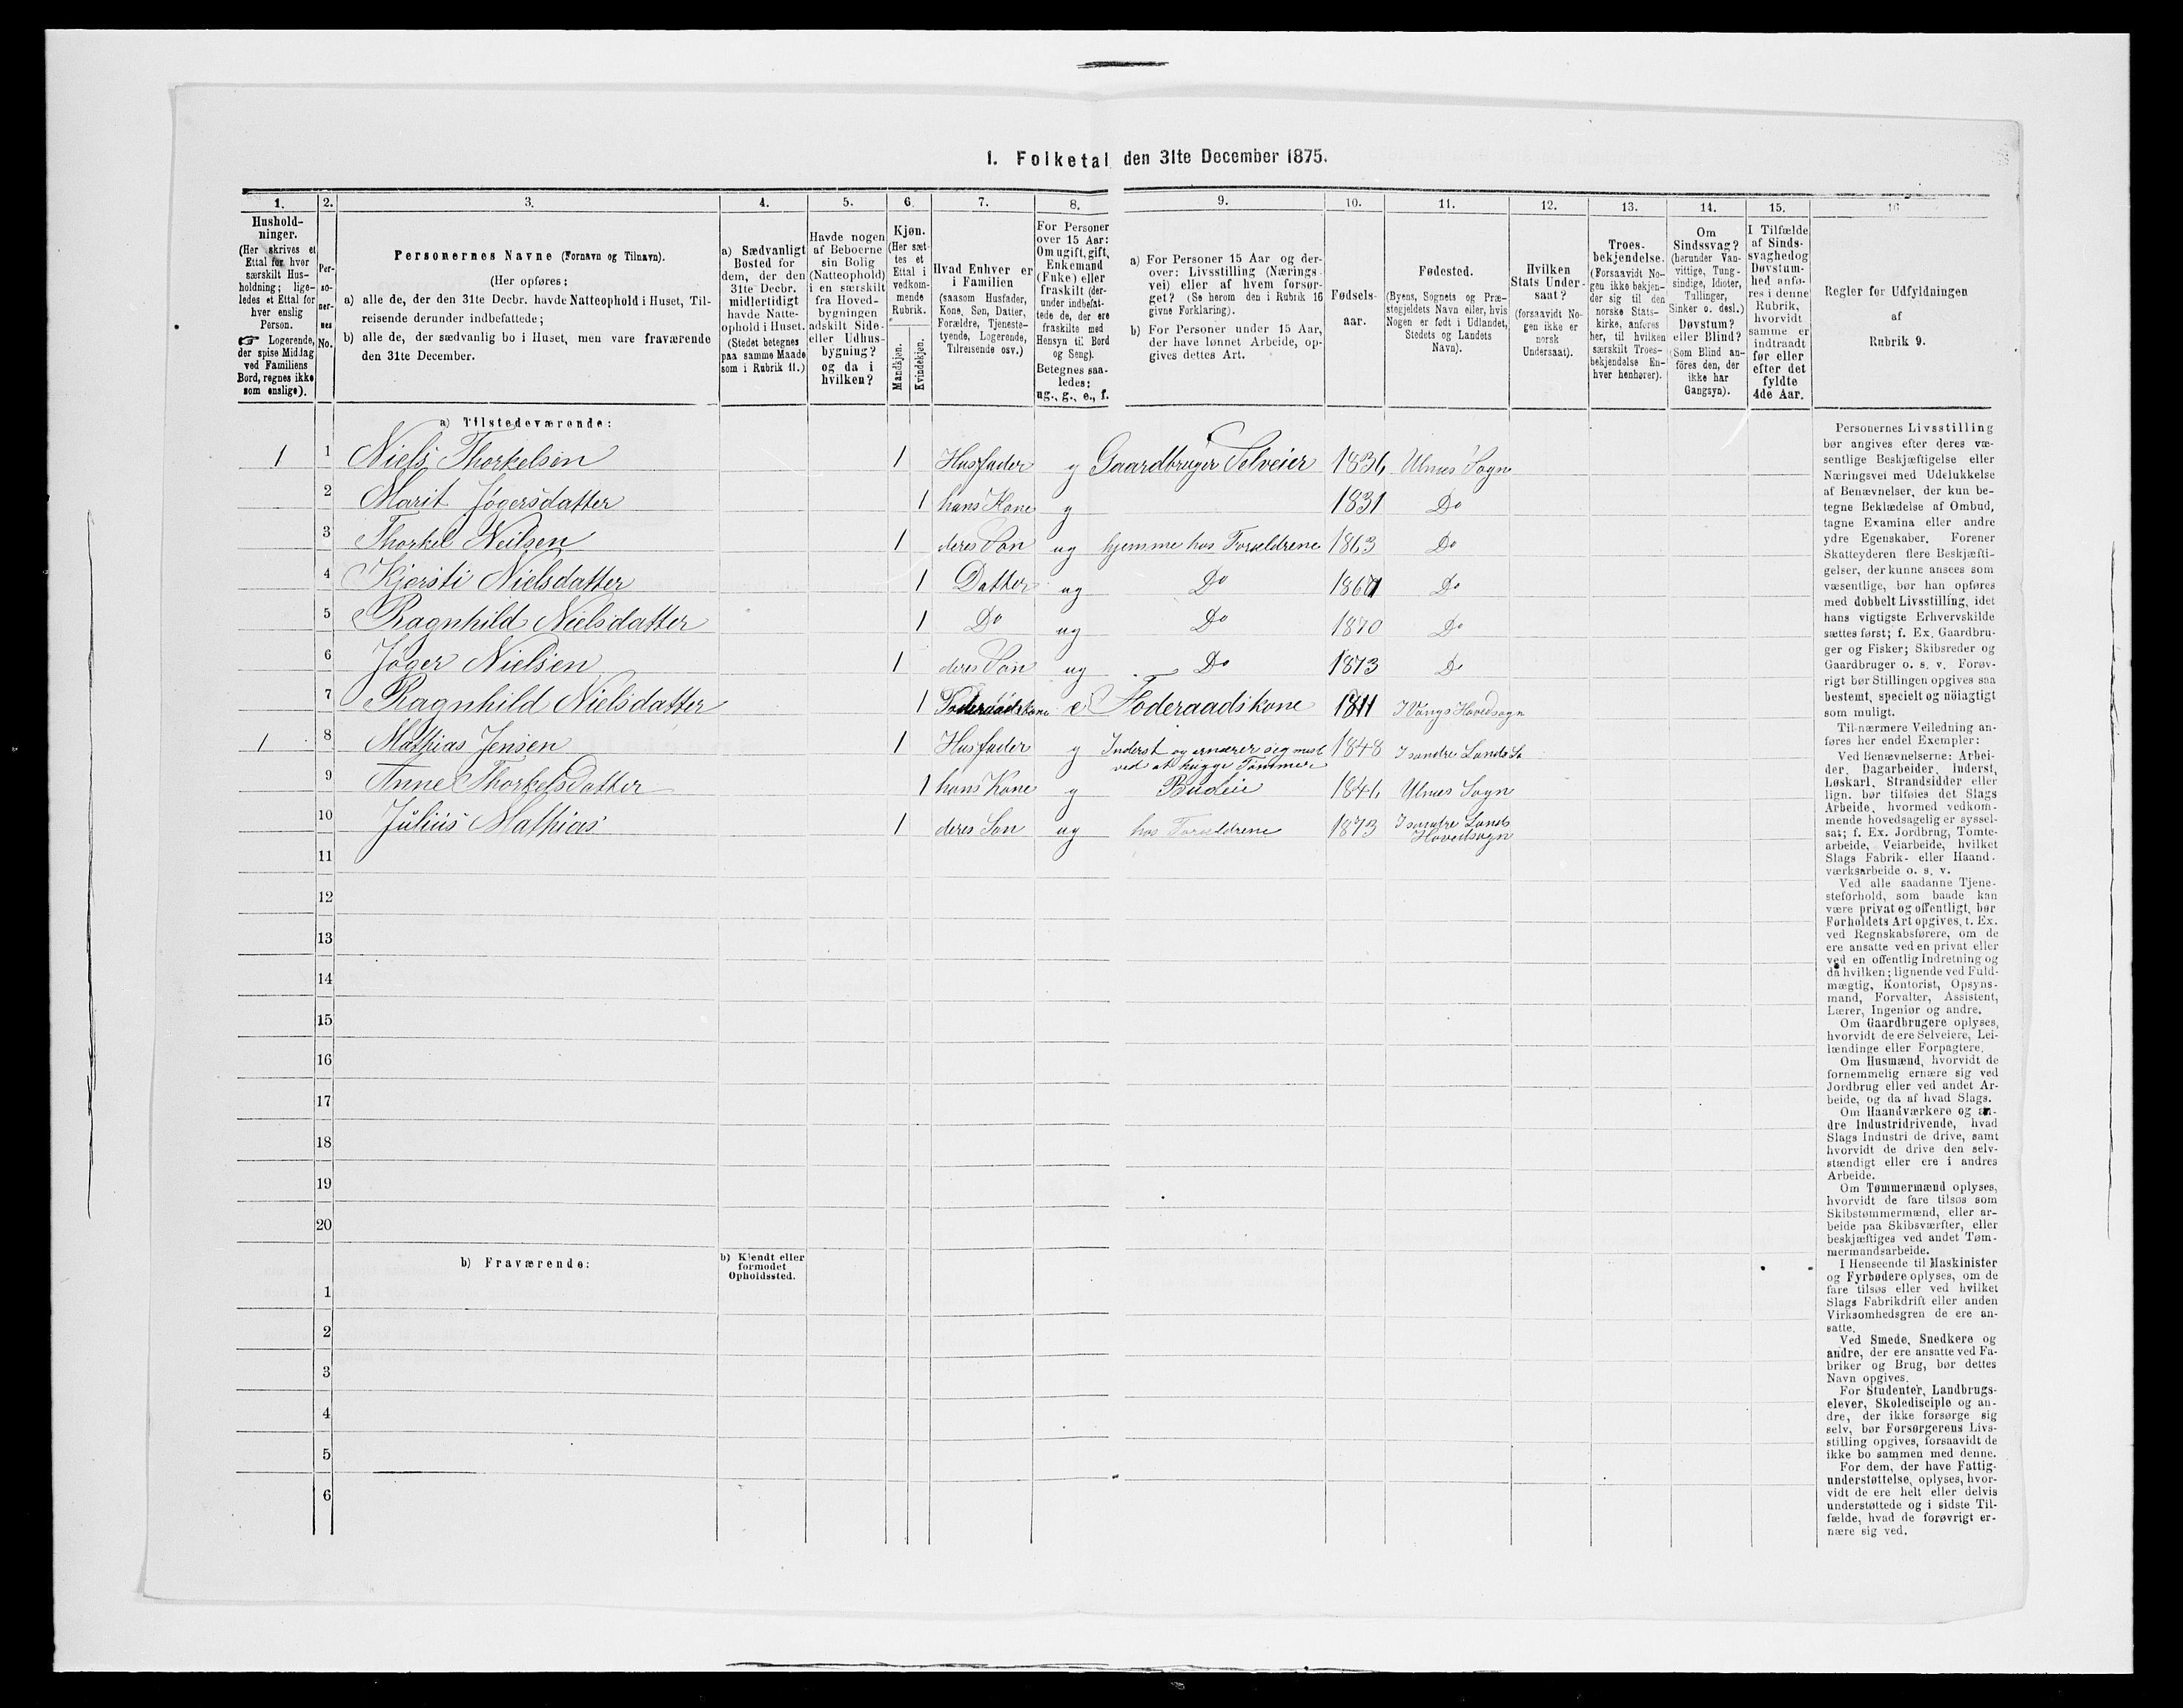 1. Folketal den 31te December 1875.
1.
2.
3.
4.
5.
6.
7.
8.
9.
10.
11.
12.
13.
14.
15.
16
Hushold-
ninger.
(Her skrives et
Ettal for hver
særskilt Hus-
holdning; lige-
ledes et Ettal for
hver enslig
Person.
☞ Logerende,
der spise Middag
ved Familiens
Bord, regnes ikke
som enslige).
Per-
so-
ner-
nes
No.
Personernes Navne (Fornavn og Tilnavn).
(Her opføres:
a) alle de, der den 31te Decbr. havde Natteophold i Huset, Til-
reisende derunder indbefattede;
b) alle de, der sædvanlig bo i Huset, men vare fraværende
den 31te December.
a) Sædvanligt
Bosted for
dem, der den
31te Decbr.
midlertidigt
havde Natte-
ophold i Huset.
(Stedet betegnes
paa samme Maade
som i Rubrik 11.)
Havde nogen
af Beboerne
sin Bolig
(Natteophold)
i en særskilt
fra Hoved-
bygningen
adskilt Side-
eller Udhus-
bygning?
og da i
hvilken?
Kjøn.
(Her sæt-
tes et
Ettal i
vedkom-
mende
Rubrik.
Mandkjøn.
Kvindekjøn.
Hvad Enhver er
i Familien
(saasom Husfader,
Kone, Søn, Datter,
Forældre, Tjeneste-
tyende, Logerende,
Tilreisende osv.)
For Personer
over 15 Aar:
Om ugift, gift,
Enkemand
(Enke) eller
fraskilt (der-
under indbefat-
tede de, der ere
fraskilte med
Hensyn til Bord
og Seng).
Betegnes saa-
ledes:
ug., g., e., f.
a) For Personer 15 Aar og der-
over: Livsstilling (Nærings-
vei) eller af hvem forsør-
get? (Se herom den i Rubrik 16
givne Forklaring).
b) For Personer under 15 Aar,
der have lønnet Arbeide, op-
gives dettes Art.
Fødsels-
aar.
Fødested.
(Byens, Sognets og Præ-
stegjeldets Navn eller, hvis
Nogen er født i Udlandet,
Stedets og Landets
Navn).
Hvilken
Stats Under-
saat?
(forsaavidt No-
gen ikke er
norsk
Undersaat).
Troes-
bekjendelse.
(Forsaavidt No-
gen ikke bekjen-
der sig til den
norske Stats-
kirke, anføres
her, til hvilken
særskilt Troes-
bekjendelse En-
hver henhører).
Om
Sindssvag?
(herunder Van-
vittige, Tung-
sindige, Idioter,
Tullinger,
Sinker o. desl.)
Døvstum?
eller Blind?
(Som Blind an-
föres den, der
ikke har
Gangsyn).
I Tilfælde
af Sinds-
svaghed og
Døvstum-
hed anfø-
res i denne
Rubrik,
hvorvidt
samme er
indtraadt
før eller
efter det
fyldte
4de Aar.
Regler for Udfyldningen
af
Rubrik 9.
a) Tilstedeværende:
1 1 Niels Thorkelsen 1 Husfader g Gaardbruger Selveier 1836 Ulnes Sogn
2 Marit Jøgersdatter 1 hans Kone g 1831 Do
3 Thorkel Neilsen 1 deres Søn ug hjemme hos Forældrene 1863 Do
4 Kjersti Nielsdatter 1 Datter ug Do Do
5 Ragnhild Nielsdatter 1 Do ug Do 1870 Do
6 Jøger Nielsen 1 deres Søn ug Do 1873 Do
7 Ragnhild Nielsdatter 1 Foderaadskone e Foderaadskone 1811 I Vangs Hovedsogn
1 8 Mathias Jensen 1 Husfader g Inderst og ernærer seg mest 1848 I søndre Lands
ved at hugge Tømmer
9 Anne Thorkelsdatter 1 hans Kone g Budeie 1846 Ulnes Sogn
10 Julius Mathias 1 deres Søn ug hos Forældrene 1873 I søndre Lands
Hovedsogn
11
12
13
14
15
16
17
18
19
20
b) Fraværende:
b) Kjendt eller
formodet
Opholdssted.
1
2
3
4
5
6
Personernes Livsstilling
bør angives efter deres væ-
sentlige Beskjæftigelse eller
Næringsvei med Udelukkelse
af Benævnelser, der kun be-
tegne Beklædelse af Ombud,
tagne Examina eller andre
ydre Egenskaber. Forener
Skatteyderen flere Beskjæfti-
gelser, der kunne ansees som
væsentlige, bør han opføres
med dobbelt Livsstilling, idet
hans vigtigste Erhvervskilde
sættes først; f. Ex. Gaardbru-
ger og Fisker; Skibsreder og
Gaardbruger o. s. v. Forøv-
rigt bør Stillingen opgives saa
bestemt, specielt og nöiagtigt
som muligt.
Til nærmere Veiledning an-
føres her endel Exempler:
Ved Benævnelserne: Arbei-
der, Dagarbeider, Inderst,
Løskarl, Strandsidder eller
lign. bør tilføies det Slags
Arbeide, hvormed vedkom-
mende hovedsagelig er syssel-
sat; f. Ex. Jordbrug, Tomte-
arbeide, Veiarbeide, hvilket
Slags Fabrik- eller Haand-
værksarbeide o. s. v.
Ved alle saadanne Tjene-
steforhold, som baade kan
være privat og offentligt, bør
Forholdets Art opgives, t. Ex.
ved Regnskabsførere, om de
ere ansatte ved en privat eller
ved en offentlig Indretning og
da hvilken; lignende ved Fuld-
mægtig, Kontorist, Opsyns-
mand, Forvalter, Assistent,
Lærer, Ingeniør og andre.
Om Gaardbrugere oplyses,
hvorvidt de ere Selveiere, Lei-
lændinge eller Forpagtere.
Om Husmænd, hvorvidt de
fornemmelig ernære sig ved
Jordbrug eller ved andet Ar-
beide, og da af hvad Slags.
Om Haandværkere og an-
dre Industridrivende, hvad
Slags Industri de drive, samt
hvorvidt de drive den selv-
stændigt eller ere i andres
Arbeide.
Om Tømmermænd oplyses,
hvorvidt de fare tilsøs som
Skibstømmermænd, eller ar-
beide paa Skibsværfter, eller
beskjæftiges ved andet Tøm-
mermandsarbeide.
I Henseende til Maskinister
og Fyrbødere oplyses, om de
fare tilsøs eller ved hvilket
Slags Fabrikdrift eller anden
Virksomhedsgren de ere an-
satte.
Ved Smede, Snedkere og
andre, der ere ansatte ved Fa-
briker og Brug, bør dettes
Navn opgives.
For Studenter, Landbrugs-
elever, Skoledisciple og an-
dre, der ikke forsørge sig
selv, bør Forsørgerens Livs-
stilling opgives, forsaavidt de
ikke bo sammen med denne.
For dem, der have Fattig-
understøttelse, oplyses, hvor-
vidt de ere helt eller delvis
understøttede og i sidste Til-
fælde, hvad de forøvrigt er-
nære sig ved.